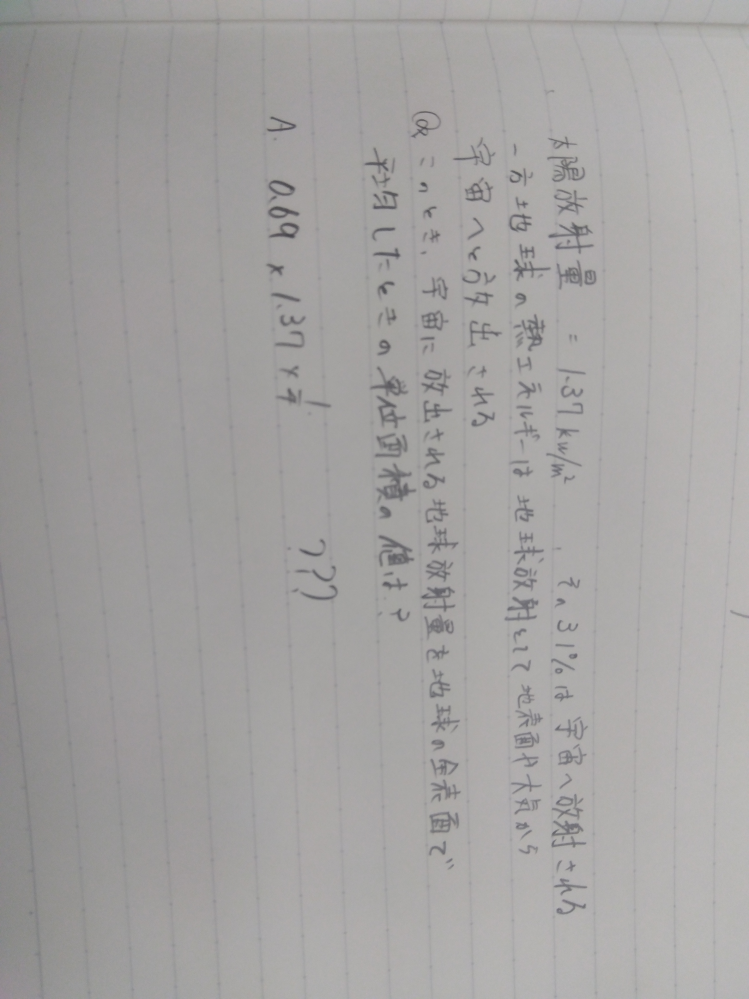 太陽放射量 = 1.37 kw/m²、その31%は宇宙へ放射される
一方地球の熱エネルギーは地球放射として地表面や大気から
宇宙へと放出される
Q. このとき、宇宙に放出される地球放射量を地球の全表面で
平均したときの単位面積の値は?
A. 0.69 × 1.37 × 1/4 ???